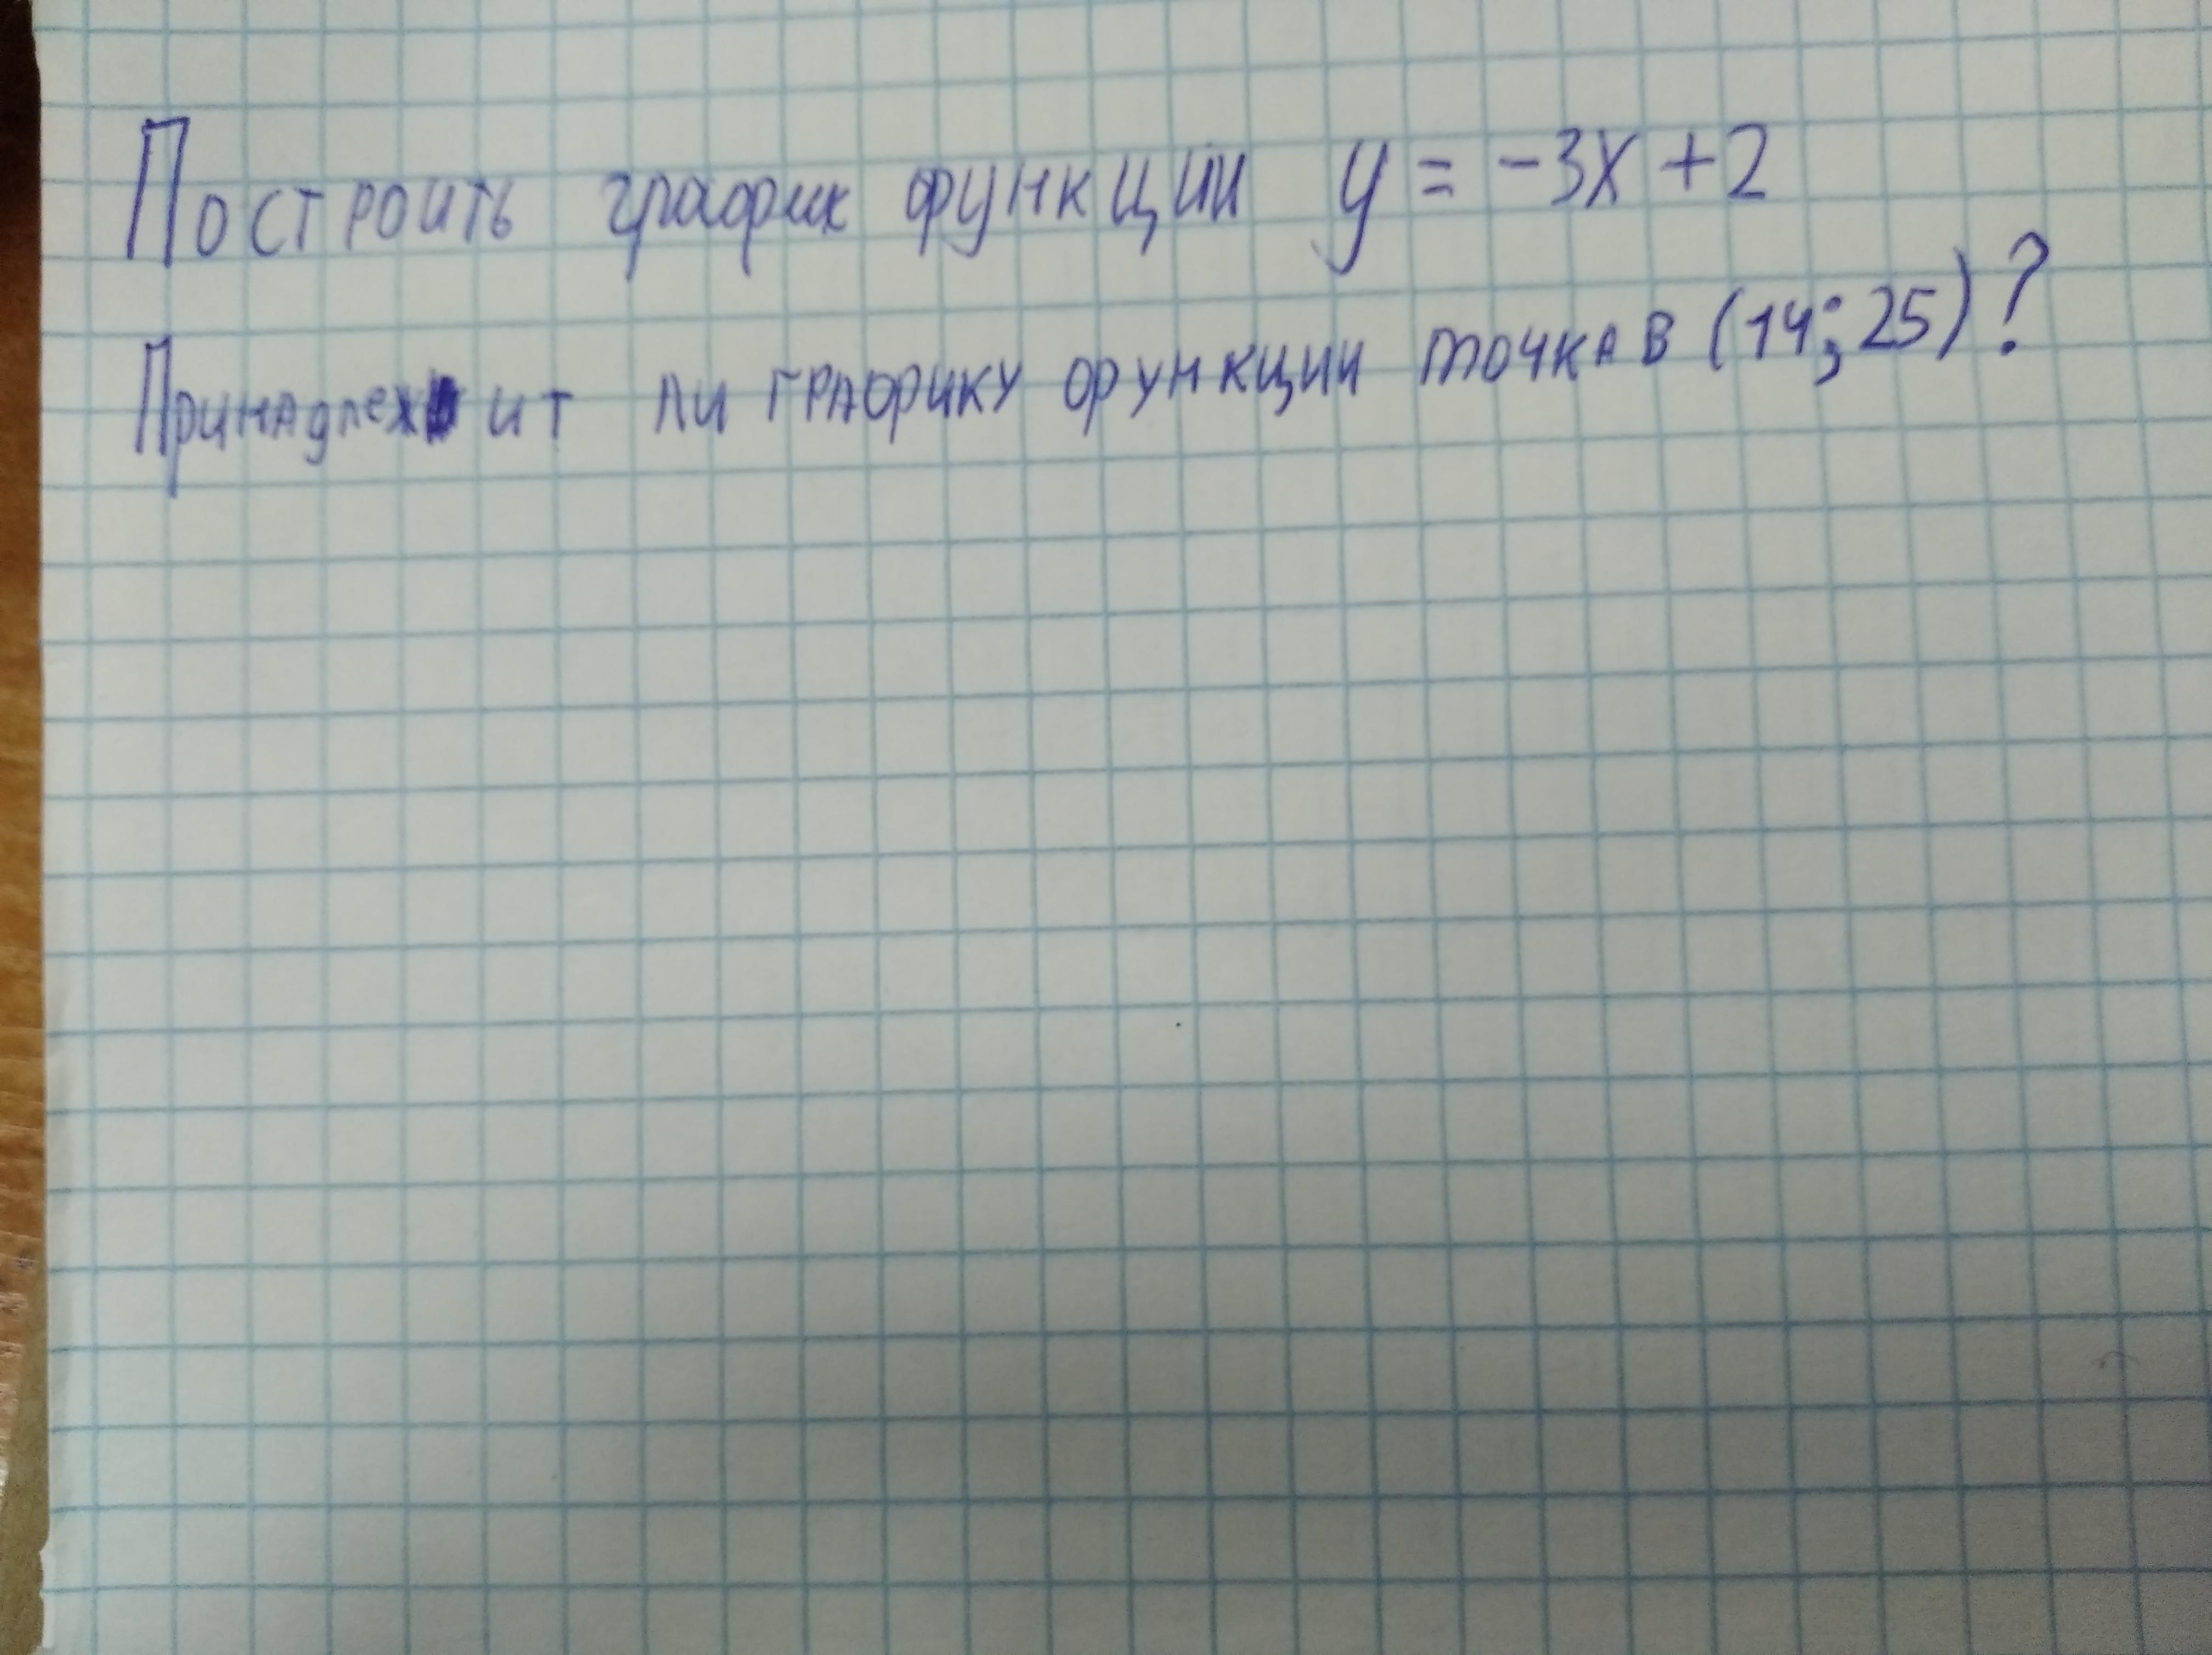 Построить график функции y = -3x + 2
Принадлежит ли графику функции точка В (14; 25)?